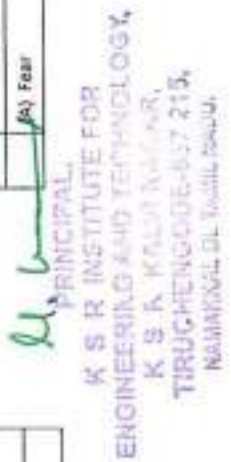 (A) Fear
PRINCIPAL,
K S R INSTITUTE FOR
ENGINEERING AND TECHNOLOGY,
K S R KALVI NAGAR,
TIRUCHENGODE-637 215,
NAMAKKAL Dt, TAMIL NADU.